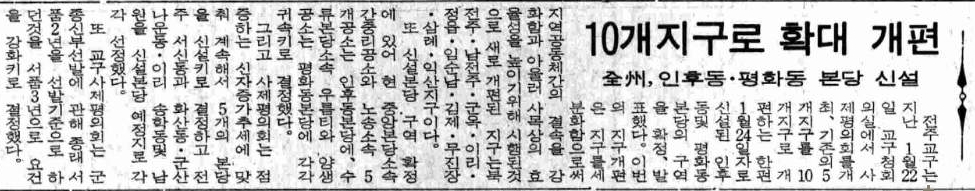 10개지구로 확대 개편
全州, 인후동·평화동 본당 신설
전주교구는
지난 1월22
일 교구청회
의실에서 사
제평의회를 개
최, 기존의 5
개지구를 10
개지구로 개
편하는 한편
1월24일자로
신설된 인후
동및 평화동
본당의 구역
을 확정, 발
표했다. 이번
의 지구개편
은 지구를세
분화함으로써
지역공동체간의 결속을 강
화함과 아울러 사목상의 효
율성을 높이기위해 시행된것
으로 새로 개편된 지구는 북
전주·남전주·군산·이리·
정읍·임순남·김제·무진장
·삼례·익산지구이다.
또 신설된 구역 확정
에 있어 현 중앙본당소속
간중리공소와 노송소속 5
개공소는 인후동본당에, 수
류본당소속 와 양생
공소는 평화동본당에 각각
귀속키로 결정했다.
그리고 사제평의회는 점
증하는 신자증가추세에 맞
춰 계속해서 5개의 본당
을 신설키로 결정하고 전
주 서신동과 화산동·군산
나운동·이리 송학동및 남
원을 신설본당 예정지로 각
각 선정했다.
또 교구사제평의회는 군
종신부선발에 관해 종래 서
품2년을 선발기준으로 하
던것을 서품3년으로 요건
을 강화키로 결정했다.